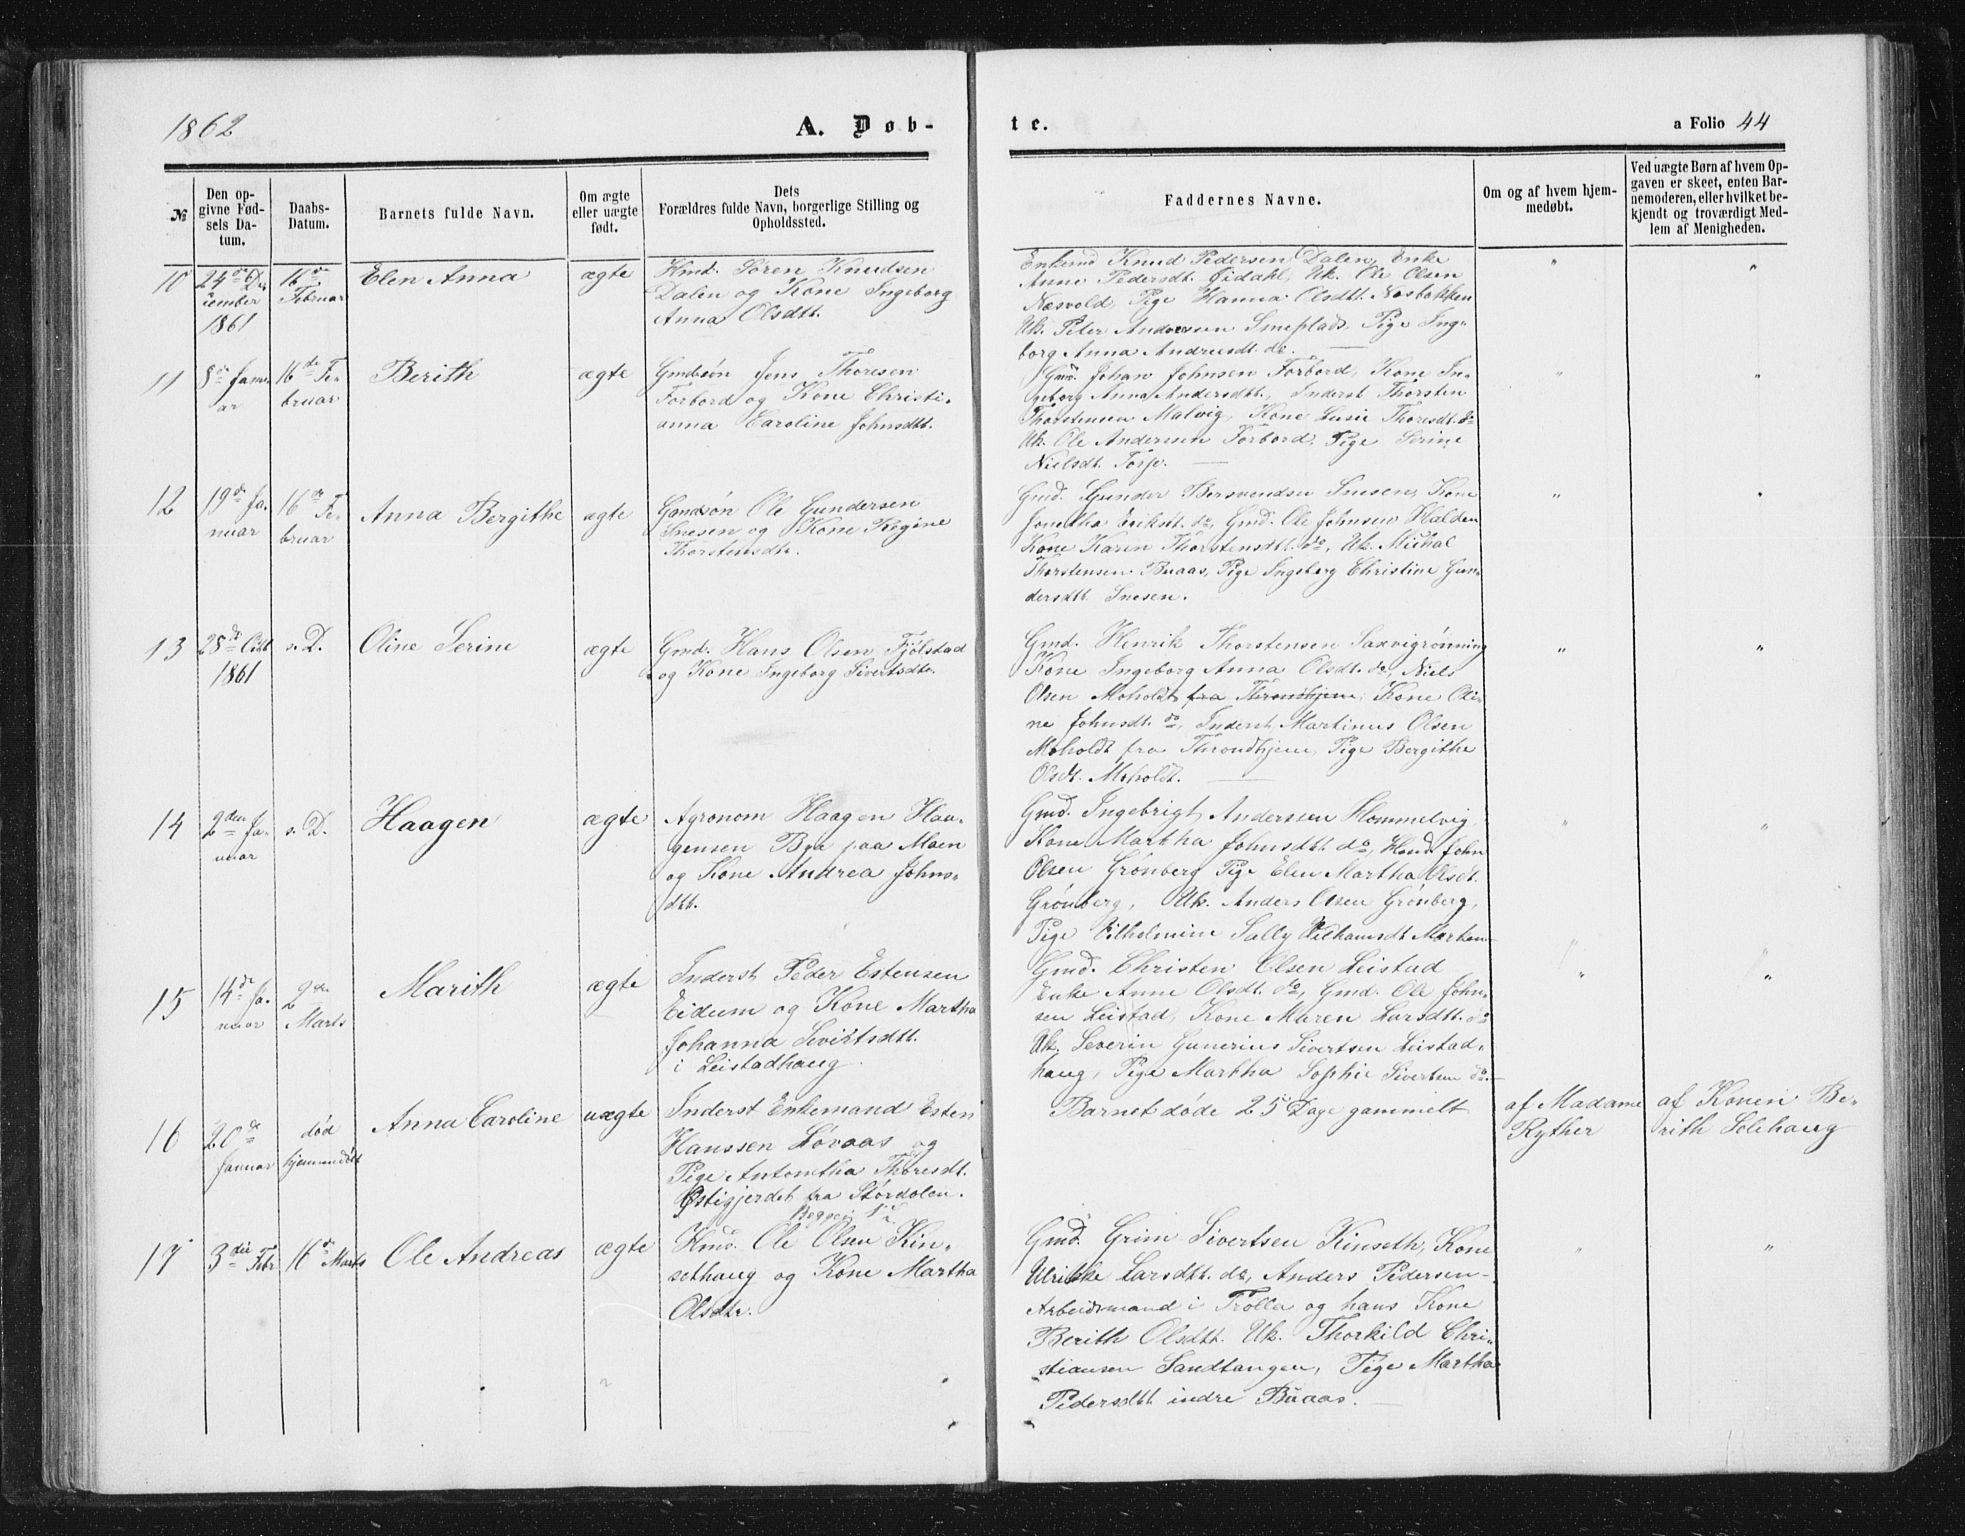 1862
A. Døb-
te.
a Folio 44
№
Den op-
givne Fød-
sels Da-
tum.
Daabs-
Datum.
Barnets fulde Navn.
Om ægte
eller uægte
født.
Dets
Forældres fulde Navn, borgerlige Stilling og
Opholdssted.
Faddernes Navne.
Om og af hvem hjem-
medøbt.
Ved uægte Børn af hvem Op-
gaven er skeet, enten Bar-
nemoderen, eller hvilket be-
kjendt og troværdigt Med-
lem af Menigheden.
10
24de De-
cember
1861
16de
Februar
Elen Anna
ægte
Hmd. Sören Knudsen
Dalen og Kone Ingeborg
Anna Olsdtt.
Enkemd Knud Pedersen Dalen, Enke
Anne Pedersdt. Öidahl, Uk. Ole Olsen
Næsvold, Pige Hanna Olsdtt. Næsbakken
Uk. Peter Andersen Smeplads, Pige Inge-
borg Anna Andersdt. do.
"
"
11
8de Janu-
ar
16de Fe-
bruar
Berith
ægte
Gmdsön Jens Thoresen
Forbord og Kone Christi-
anna Caroline Johnsdtt.
Gmd. Johan Johnsen Forbord, Kone In-
geborg Anna Andersdtt., Inderst Thorsten
Thorstensen Malvig, Kone Lusie Thoresdt. do
Uk. Ole Andersen Forbord. Pige Serine
Nielsdt. Torp.
"
"
12
19de Ja-
nuar
16de Fe-
bruar
Anna Bergithe
ægte
Gmdsön Ole Gundersen
Snesen og Kone Regine
Thorstensdtt.
Gmd. Gunder Bersvendsen Snesen, Kone
Jonetha Eriksdt. do, Gmd. Ole Johnsen Halden
Kone Karen Thorstensdtt. do, Uk. Michal
Thorstensen Buaas, Pige Ingeborg Christine Gun-
dersdtt. Snesen.
"
"
13
28de Octb
1861
s. D.
Oline Serine
ægte
Gmd. Hans Olsen Fjölstad
og Kone Ingeborg Sivertsdtr.
Gmd. Henrik Thorstensen Saxvigrönning
Kone Ingeborg Anna Olsdt. do, Niels
Olsen Moholdt fra Throndhjem, Kone Oli-
ne Johnsdt. do, Inderst Martinus Olsen
Moholdt fra Throndhjem, Pige Bergithe
Olsdt. Moholdt.
"
"
14
2den Ja-
nuar
s. D.
Haagen
ægte
Agronom Haagen Haa-
gensen Bye paa Moen
og Kone Andrea Johns-
dtt.
Gmd. Ingebrigt Anderssen Hommelvig
Kone Martha Johnsdtt. do, Hmd. John
Olsen Grönberg Pige Elen Martha Olsdt.
Grönberg, Uk. Anders Olsen Grönberg,
Pige Vilhelmine Sally
"
"
15
14de Ja-
nuar
2den
Marts
Marith
ægte
Inderst Peder Estensen
Eidum og Kone Martha
Johanna Sivertsdtt.
i Leistadhaug
Gmd. Christen Olsen Leistad
Enke Anne Olsdt. do, Gmd. Ole John-
sen Leistad, Kone Maren Larsdtt. do
Uk. Severin Gunerius Sivertsen Leistad-
haug, Pige Martha Sophie Sivertsen do.
"
"
16
20de
Januar
död
hjemmedöbt
Anna Caroline
uægte
Inderst Enkemand Esten
Hanssen Lövaas og
Pige Antonetha Thoresdt.
Östigjerdet fra Stördalen.
Begges 1ste
Barnet döde 25 Dage gammelt
af Madame
Ryther
af Konen Be-
rith Solehaug
17
3die Febr
16de Marts
Ole Andreas
ægte
Hmd. Ole Olsen Kin-
sethaug og Kone Martha
Olsdtr.
Gmd. Grim Sivertsen Kinseth, Kone
Ulrikke Larsdtt. do, Anders Pedersen
Arbeidsmand i Trolla og hans Kone
Berith Olsdtt. Uk. Thorkild Chri-
stiansen Sandtangen, Pige Martha
Pedersdtt. indre Buaas.
"
"